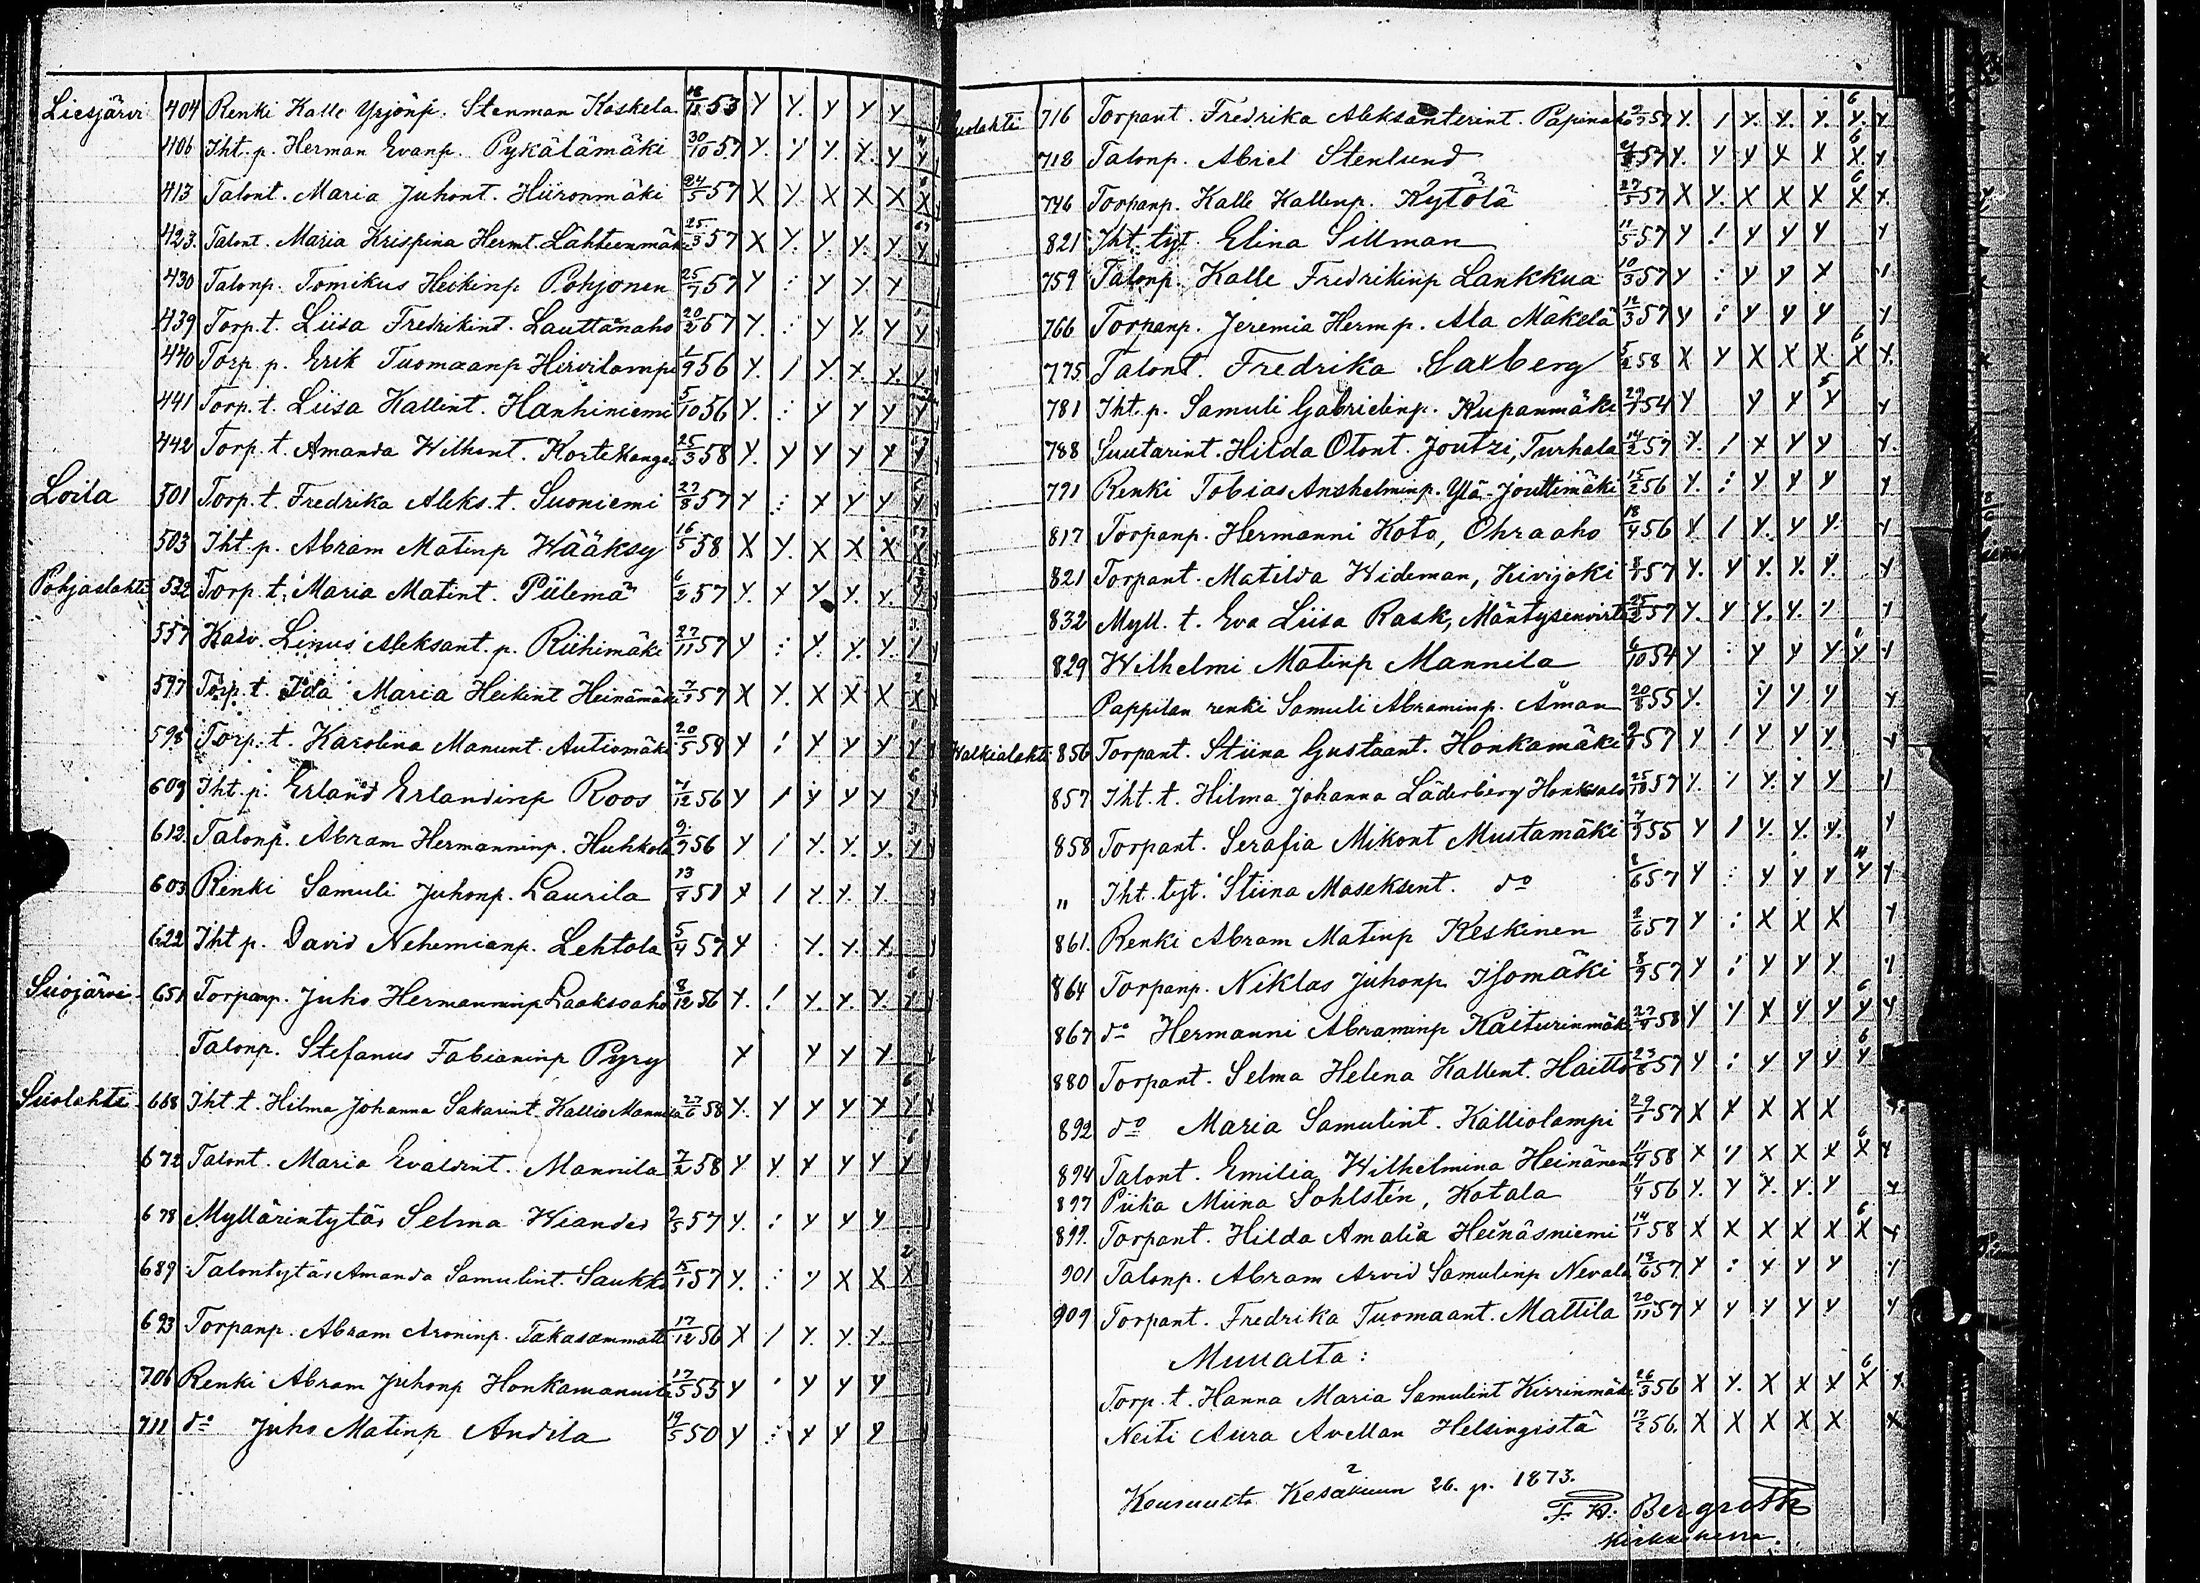 Liesjärvi 404 Renki Kalle Yrjönp. Stenman Koskela 53 Y Y. Y Y Y
406 Iht. p. Herman Evanp. Pykälämäki 30/10 57 Y. Y Y. Y. Y
413 Talont. Maria Juhont. Hiironmäki 24/5 57 X Y. X X X X
423. Talont. Maria Krispina Hermt. Lähteenmäki 25/3 57 X Y. Y. Y. Y. Y
430 Talonp. Tomikus Heikinp. Pohjonen 57 Y : Y Y Y
439 Torp. t. Liisa Fredrikint. Lauttanaho 20/2 57 Y. : Y Y. Y Y
440 Torp. p. Erik Tuomaanp Hirvilampi 1/9 56 Y. / Y. Y. Y. Y
441 Torp. t. Liisa Kallint. Hanhiniemi 5/10 56 Y. : Y Y Y Y
442 Torp. t. Amanda Wilhent. Kortekangas 25/3 58 Y. Y Y Y Y Y
Loila 501 Torp. t. Fredrika Aleks. t. Suoniemi 27/8 57 Y : Y Y Y Y
503 Iht. p. Abram Matinp Wääksy 16/5 58 X Y. X X X X
Pohjaslahti 532 Torp. t. Maria Matint. Piilemä 6/2 57 Y. Y Y Y. Y. Y
557 Linus Aleksant. p. Riihimäki 27/11 57 Y : Y. Y. Y. Y
597 Torp. t. Ida Maria Heikint Heinämäki 57 X Y. X X X X
598 Torp. t. Karolina Manunt. Autiomäki 20/5 58 Y : Y Y Y Y
609 Iht. p. Erland Erlandinp Roos 7/12 56 Y / Y Y Y Y
612. Talonp. Abram Hermanninp. Huhkola 9/9 56 Y / Y. Y. Y. Y
603 Renki Samuli Juhonp. Laurila 51 Y / Y. Y. Y.
622 Iht p. David Nehemianp. Lehtola 57 Y : Y. Y. X.
Suojärvi 651 Torpanp. Juho Hermanninp Laaksoaho 8/12 56 Y. ! Y. Y. Y. Y
Talonp. Stefanus Fabianinp Pyry Y Y Y Y
Suolahti 668 Iht. t. Hilma Johanna Sakarint. Kallio Mannila 27/6 58 Y. Y Y Y Y Y
672 Talont. Maria Evaldint. Mannila 7/2 58 Y Y Y Y Y Y
678 Myllärintytär Selma Wiander 2/5 57 Y. : Y Y Y
689 Talontytär Amanda Samulint. Saukko 15/1 57 Y. : Y X X X
693 Torpanp. Abram Aroninp. Takasammatti 17/12 56 X / Y. Y. Y.
706 Renki Abram Juhonp Honkamannila 17/5 55 Y ' Y Y Y
711 do Juho Matinp Andila 19/5 50 Y : Y Y Y
716 Torpant. Fredrika Aleksanterint. Papinaho 57 Y. / Y. Y. Y. Y. Y
718 Talonp. Abiel Stenlund 57 Y. Y Y X X X. Y
746 Torpanp. Kalle Kallenp. Kytölä 27/5 57 X Y. X X X X Y
821 Iht. tyt. Elina Sillman 11/5 57 Y ! Y Y Y Y
759 Talonp. Kalle Fredrikinp Lankkua 10/3 57 Y : Y Y Y
766 Torpanp. Jeremia Hermp. Ala Mäkelä 12/3 57 Y : Y Y Y Y
775 Talont. Fredrika Saxberg 5/2 58 X Y X X X X Y.
781 Iht. p. Samuli Gabrielinp. Kupanmäki 54 Y Y Y Y Y
788 Suutarint. Hilda Otont. Joutzi, Turhala 14/2 57 Y. / X Y Y Y.
791 Renki Tobias Anshelminp. Ylä-Jouttimäki 15/2 56 Y. : Y Y Y Y
817 Torpanp. Hermanni Koto, Ohraaho 56 Y. / Y. Y Y. Y
821 Torpant. Matilda Wideman, Kivijoki 57 Y. Y Y. Y. Y. Y
832 Myll. t. Eva Liisa Rask, Mäntysenvirta 25/2 57 Y. Y Y. Y. Y
829 Wilhelmi Matinp Mannila 6/10 54 Y : Y Y Y Y Y
Pappilan renki Samuli Abraminp. Åman 20/8 55 Y. Y Y. Y Y
Walkialahti 856 Torpant. Stiina Gustaant. Honkamäki 57 Y ! Y Y Y Y
857 Iht. t. Hilma Johanna Läderberg Honkasalo 25/10 57 Y. Y. Y Y Y
858 Torpant. Serafia Mikont Mustamäki 7/9 55 Y / Y. Y. Y. Y
" Iht. tyt. Stiina Moseksent. do 57 Y : Y Y Y Y Y
861. Renki Abram Matinp Keskinen 57 Y : X X X Y
864 Torpanp. Niklas Juhonp Isomäki 8/9 57 Y : Y Y Y
867 do Hermanni Abraminp Kaiturinmäki 58 Y Y X Y Y Y Y
880 Torpant. Selma Helena Kallent. Haitto 57 Y : Y Y Y Y
892 do Maria Samulint. Kalliolampi 57 X X X X X
894 Talont. Emilia Wilhelmina Heinänen 58 X Y X X X X Y
897 Piika Miina Sohlstén, Kotala 56 Y. Y Y. Y. Y Y
899. Torpant. Hilda Amalia Heinäsniemi 14/1 58 X X X X X X Y
901 Talonp. Abram Arvid Samulinp Nevala 57 Y : Y Y Y Y
909 Torpant. Fredrika Tuomaant. Mattila 20/11 57 Y Y Y Y Y Y
Muualta:
Torp. t. Hanna Maria Samulint Kirrinmäki 26/3 56 X Y. X X X X Y
Neiti Aura Avellan Helsingistä 56. X X X X X X
Keuruulta Kesäkuun 26. p. 1873.
F. W. Bergroth
Kirkkoherra.